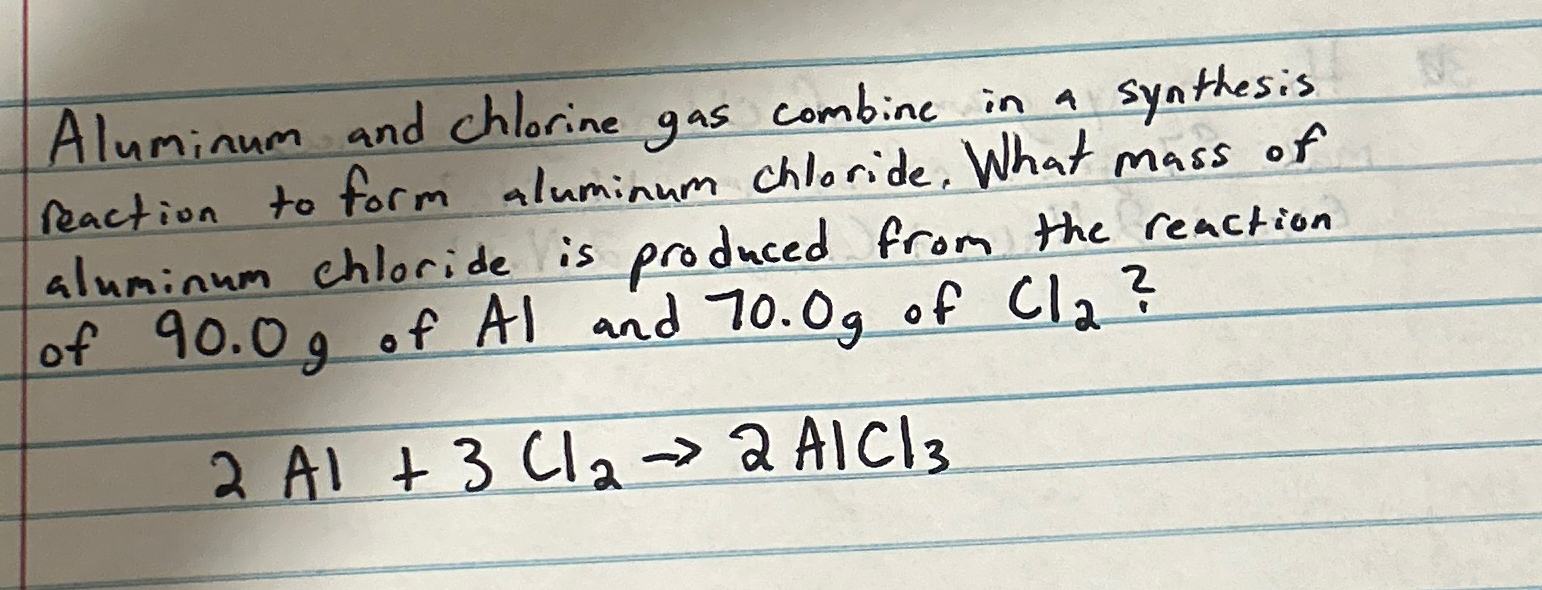 Aluminum and chlorine gas combine in a synthesis
reaction to form aluminum chloride. What mass of
aluminum chloride is produced from the reaction
of 90.0g of Al and 70.0g of Cl₂?
2 Al + 3 Cl₂ → 2 AlCl₃